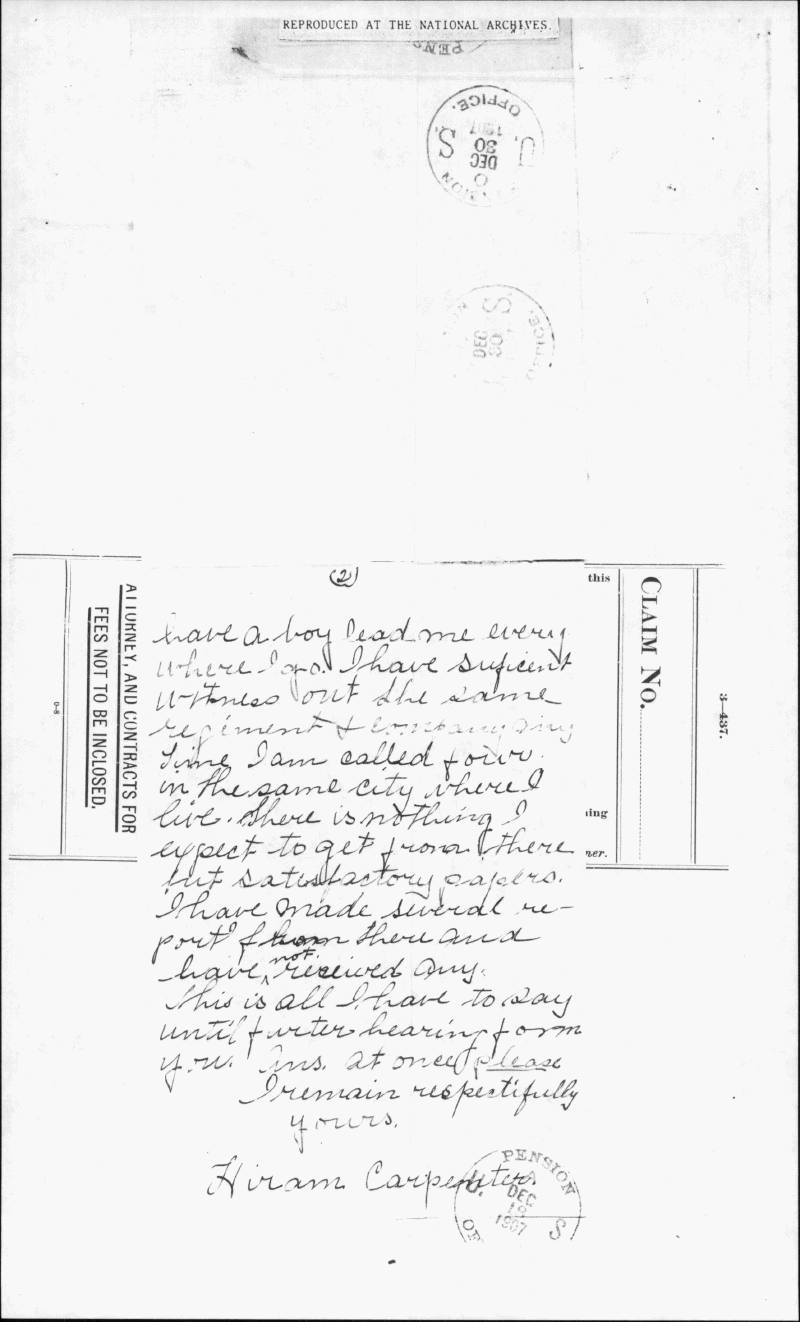 REPRODUCED AT THE NATIONAL ARCHIVES.
PENS
OFFICE.
1907
U. S.
30
DEC
SION
S.
DEC
30
OFFICE.
(2)
have a boy lead me every
where I go. I have suficent
witness out the same
regiment & company any
time I am called for
in the same city where I
live. there is nothing I
expect to get from there
but satesfactory papers.
I have made several re-
port from there and
have not received any.
this is all I have to say
until furter hearing form
you. Ans. at once please
I remain respectifully
yours.
Hiram Carpenter.
PENSION
U. S.
DEC
19
1907
OF
ATTORNEY, AND CONTRACTS FOR
FEES NOT TO BE INCLOSED.
6-8
this
ing
ner.
CLAIM NO.
3—437.